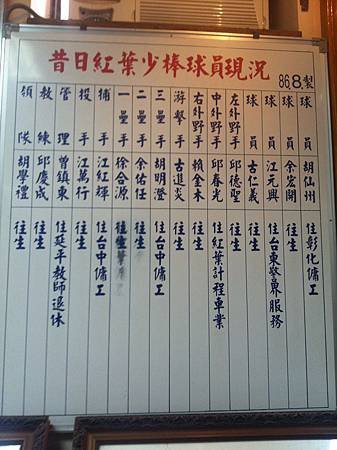 昔日紅葉少棒球員現況
86.8.製
領隊 胡學禮 往生
教練 邱慶成 往生
管理 曾鎮東 住延平教師退休
投手 江萬行 往生
捕手 江紅輝 住台中傭工
一壘手 徐合源 往生
二壘手 余佑任 往生
三壘手 胡明澄 住台中傭工
游擊手 古進炎 往生
右外野手 賴金木 往生
中外野手 邱春光 住紅葉計程車業
左外野手 邱德聖 往生
球員 古仁義 往生
球員 江元興 住台東警界服務
球員 余宏開 往生
球員 胡仙洲 住彰化傭工